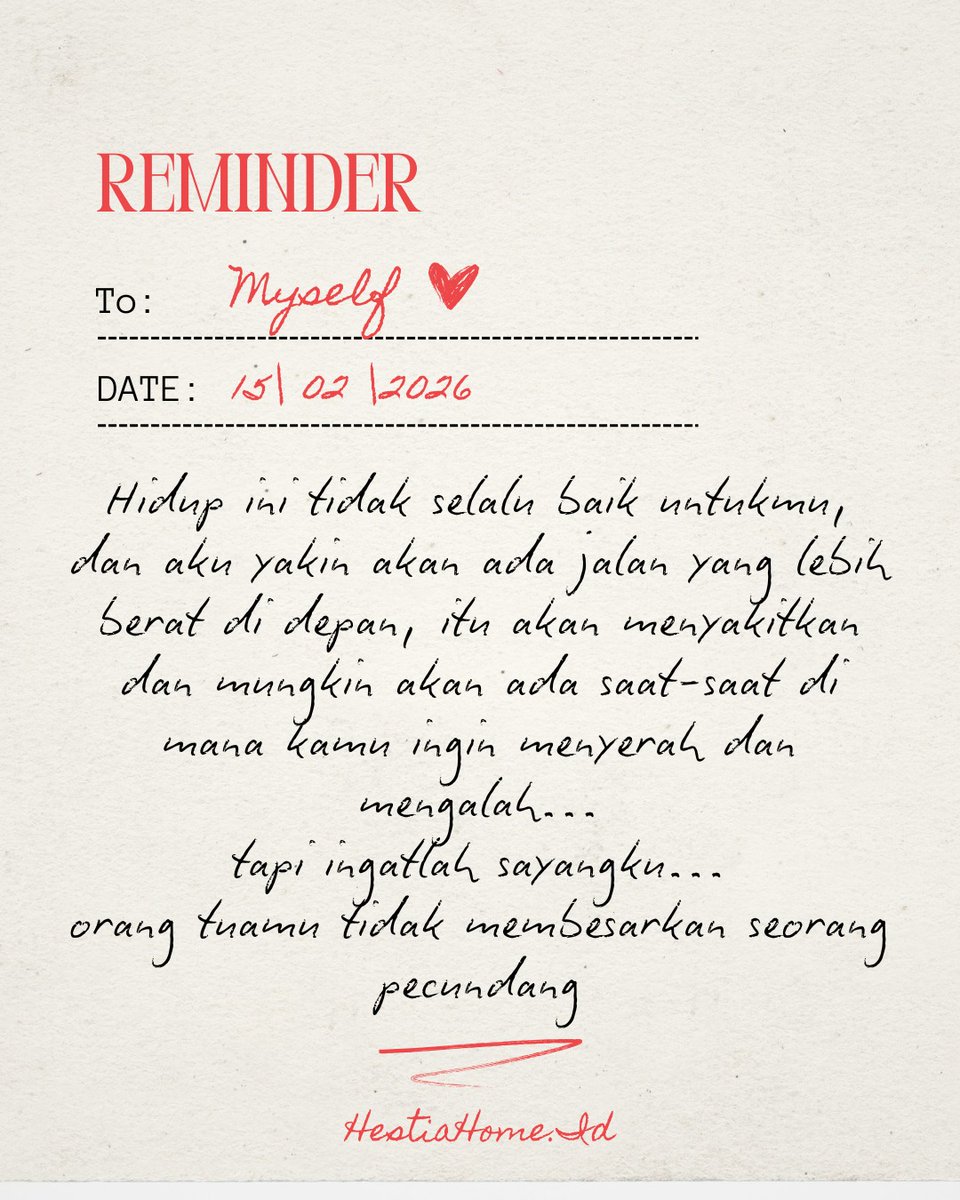 REMINDER
To: Myself
DATE: 15| 02 |2026
Hidup ini tidak selalu baik untukmu,
dan aku yakin akan ada jalan yang lebih
berat di depan, itu akan menyakitkan
dan mungkin akan ada saat-saat di
mana kamu ingin menyerah dan
mengalah...
tapi ingatlah sayangku...
orang tuamu tidak membesarkan seorang
pecundang
HestiaHome.Id